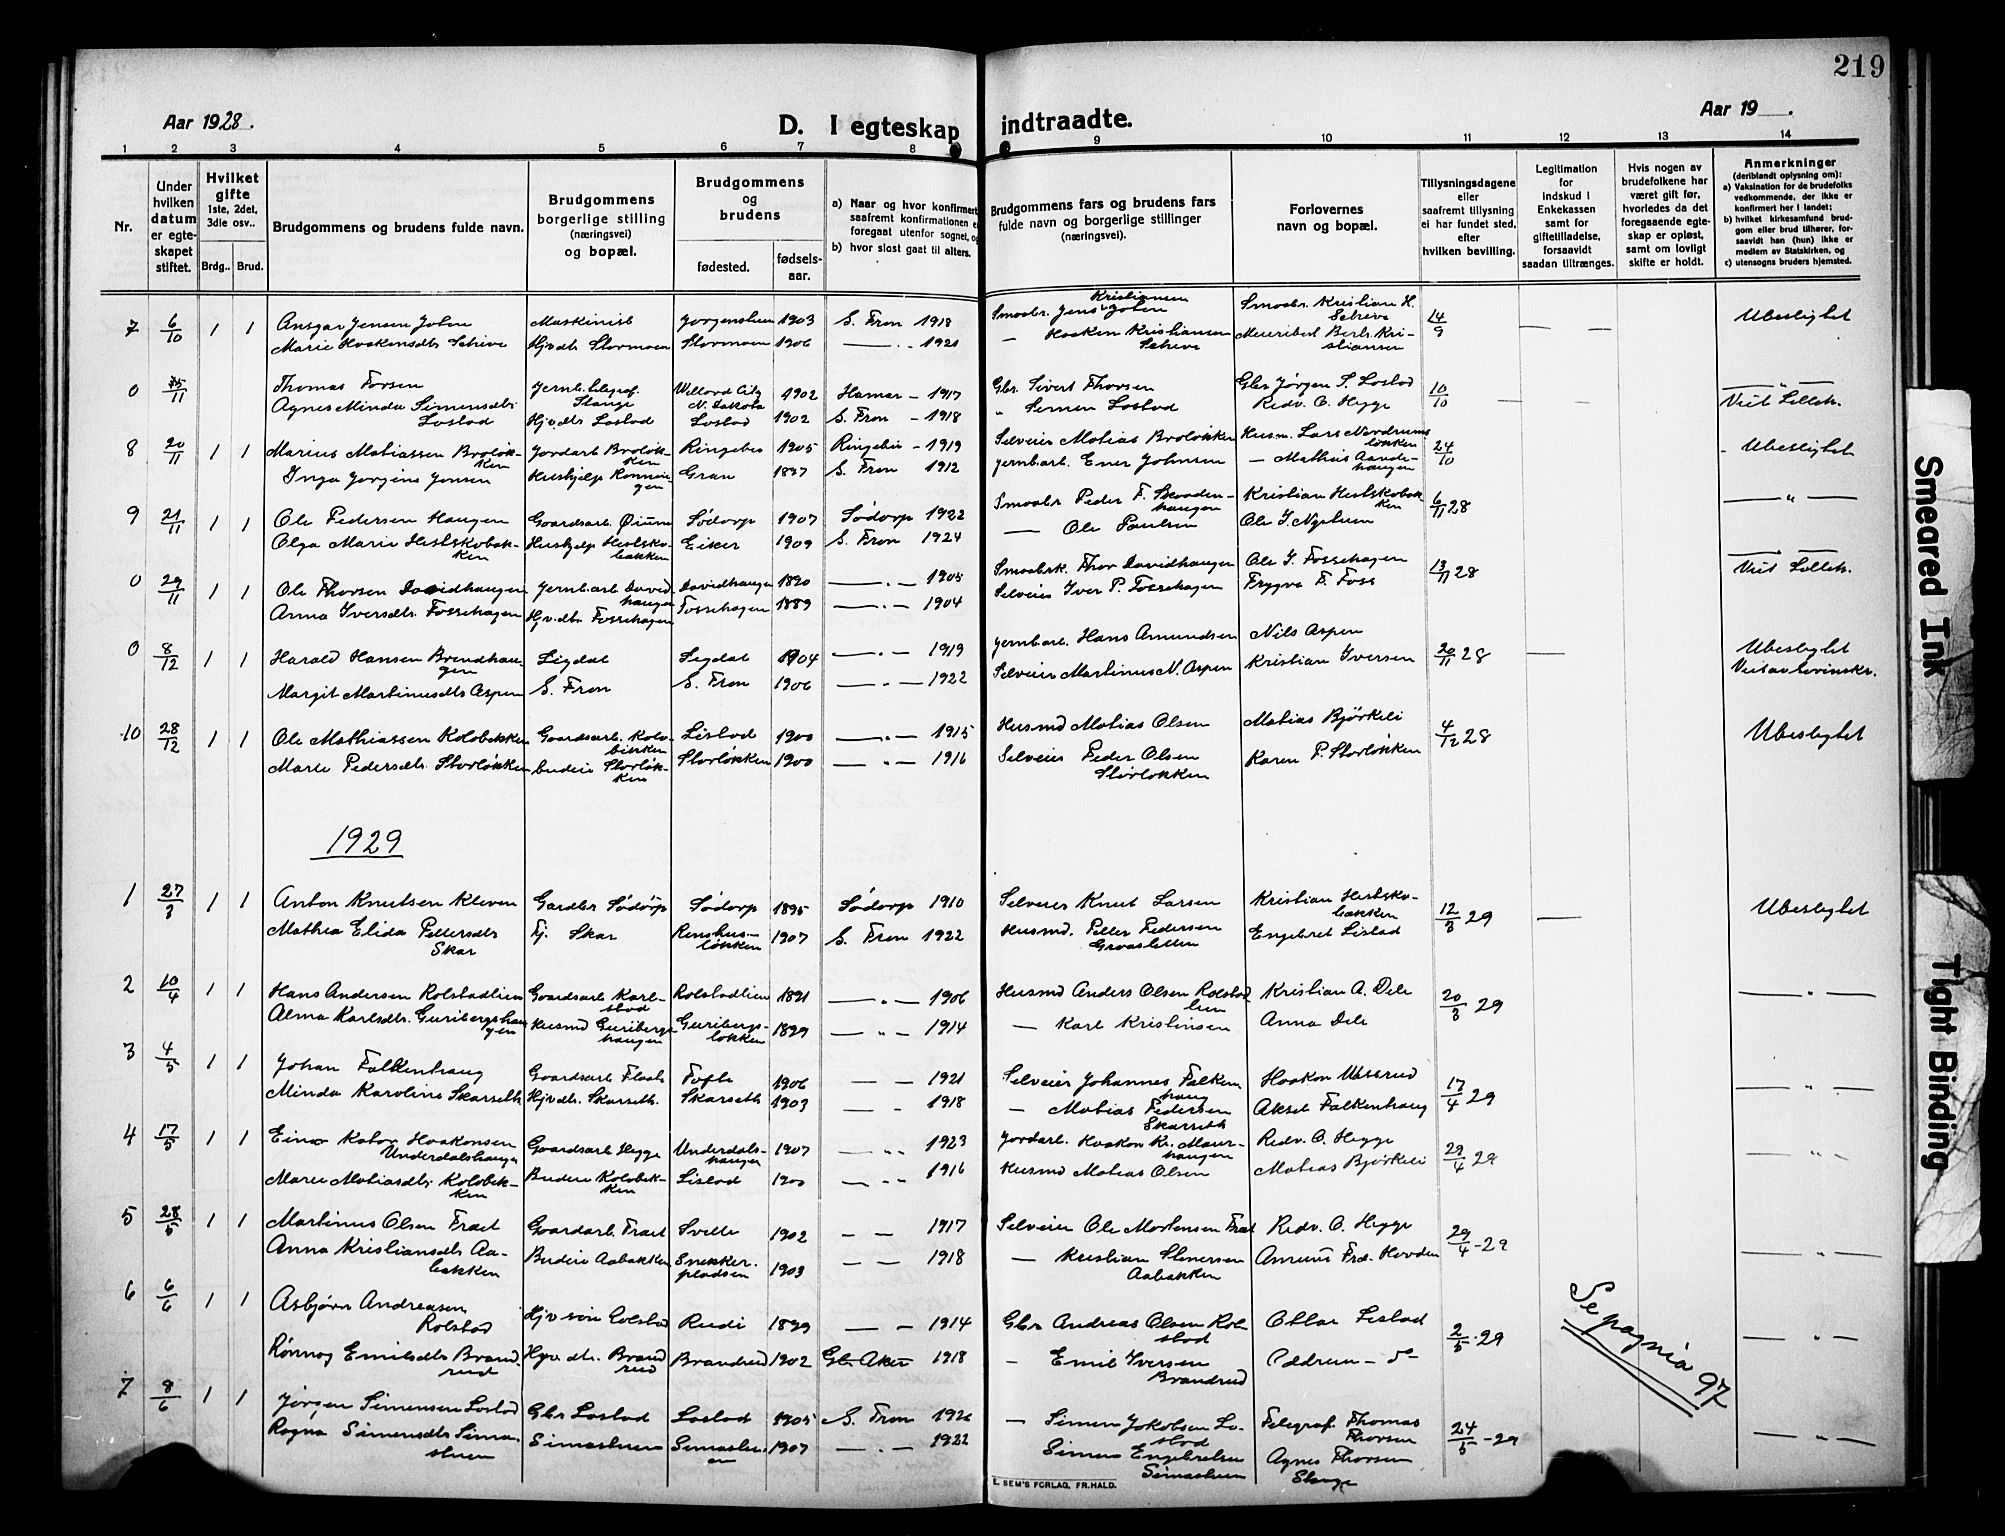 219
Aar 1928.
D. I egteskap indtraadte.
Aar 19 .
1 2 3 4 5 6 7 8 9 10 11 12 13 14
Nr.
Under hvilken datum er egteskapet stiftet.
Hvilket gifte 1ste, 2det, 3die osv..
Brdg.. Brud.
Brudgommens og brudens fulde navn.
Brudgommens borgerlige stilling (næringsvei) og bopæl.
Brudgommens og brudens
fødested.
fødselsaar.
a) Naar og hvor konfirmert
saafremt konfirmationen e
foregaat utenfor sognet, og
b) hvor sidst gaat til alters.
Brudgommens fars og brudens fars fulde navn og borgerlige stillinger (næringsvei).
Forlovernes navn og bopæl.
Tillysningsdagene eller saafremt tillysning ei har fundet sted, efter hvilken bevilling.
Legitimation for indskud i Enkekassen samt for giftetilladelse, forsaavidt saadan tiltrænges.
Hvis nogen av brudefolkene har været gift før, hvorledes da det foregaaende egteskap er opløst, samt om lovligt skifte er holdt.
Anmerkninger
(deriblandt oplysning om):
a) Vaksination for de brudefolks vedkommende, der ikke er konfirmert her i landet;
b) hvilket kirkesamfund brudgom eller brud tilhører, forsaavidt han (hun) ikke er medlem av Statskirken, og
c) utensogns bruders hjemsted.
7 6/10 1 1 Ansgar Jensen Joten Maskinist Jorgenstuen 1903 S. Fron 1918 Smaabr. Jens Kristiansen Joten Smaabr. Kristian H. Schive 14/9 Ubeslegtet
Marie Haakensdtr Schive Hjvdtr Stormoen Stormoen 1906 — " - 1921 — Haaken Kristiansen Schive Meieribest Berb. Kristiansen
0 15/11 Thomas Torsen Jernb. telegraf. Stange Willord City N. Dakota 1902 Hamar - 1917 Gbr. Sivert Thorsen Gbr Jörgen S. Lostad 10/10 — " —
Agnes Minda Simensdtr. Lostad Hjvdtr Lostad Lostad 1902 S. Fron - 1918 " Semen Lostad Redv. O. Hegge Viet Lilleh.
8 20/11 1 1 Marius Matiassen Broløkken Jordarb Broløkken Ringebu 1905 Ringebu - 1919 Selveier Matias Broløkken Husm. Lars Nordrumsløkken 24/10 Ubeslegtet
Inga Jørgine Jonsen Hushjelp Gran 1887 S. Fron 1912 Jernbarb. Ener Johnsen — Mathias Aandehaugen
9 21/11 1 1 Ole Pedersen Haugen Gaardsarb. Øium Sødorp 1907 Sødorp 1922 Smaabr Peder F. Skoadenhaugen Kristian Hestskobakken 6/11 28 — " —
Olga Marie Hestskobakken Hushjelp Hestskobakken Eiker 1909 S. Fron 1924 — Ole Paulsen Ole I. Nystuen
0 29/11 1 1 Ole Thorsen Davidhaugen Jernbarb Davidhaugen Davidhaugen 1890 — " — 1905 Smaabrk. Thor Davidhaugen Ole I. Fossehagen 13/11 28 — " —
Anna Iversdtr. Fossehagen Hjv.dtr. Fossehagen Fossehagen 1889 — " — 1904 Selveier Iver P. Fossehagen Trygve F. Foss Viet Lilleh.
0 8/12 1 1 Harald Hansen Brendhaugen Sigdal Sigdal 1904 — " — 1919 Jernbarb. Hans Amundsen Nils Aspen 20/11 28 Ubeslegtet
Margit Martinusdtr Aspen S. Fron S. Fron 1906 — " — 1922 Selveier Martinus N. Aspen Kristian Iversen
10 28/12 1 1 Ole Mathiassen Kolobekken Gaardsarb. Kolobekken Listad 1900 — " — 1915 Husmd Matias Olsen Matias Bjørkeli 4/12 28 Ubeslegtet
Marie Pedersdtr. Storløkken budeie Storløkken Storløkken 1900 — " — 1916 Selveier Peder Olsen Storløkken Karen P. Storløkken
1929
1 27/3 1 1 Anton Knutsen Kleven Gardbr Sødorp Sødorp 1895 Sødorp 1910 Selveier Knut Larsen Kristian Hestskobakken 12/3 29 Ubeslegtet
Mathea Elida Pettersdtr Skar Tj. Skar Renshusløkken 1907 S. Fron 1922 Husmd. Petter Pedersen Graasletten Engebret Listad
2 10/4 1 1 Hans Andersen Rolstadlien Gaardsarb Karlstad Rolstadlien 1891 — " — 1906 Husmd Anders Olsen Rolstadlien Kristian A. Dele 20/3 29 — " —
Alma Karlsdtr. Guribergshaugen Husmd Guribergshaugen Guribergsløkken 1899 — " — 1914 — Karl Kristinsen Anna Dele
3 4/5 1 1 Johan Falkenhaug Gaardsarb Flaate Tofte 1906 — — 1921 Selveier Johannes Falkenhaug Haakon Ulsrud 17/4 29 — " —
Minda Karoline Skarseth Hjvdtr. Skarseth. Skarseth 1903 — - 1918 — Matias Pedersen Skarseth Aksel Falkenhaug
4 17/5 1 1 Einar Kator Haakonsen Underdalshaugen Gaardsarb Hegge Underdalshaugen 1907 — " 1923 Jordarb. Haakon Kr. Maurhaugen Redv. O. Hegge 29/4 29 — " —
Marie Matiasdtr. Kolobekken Budeie Kolobekken Listad 1900 — " 1916 Husmd Matias Olsen Matias Bjørkeli
5 28/5 1 1 Martinus Olsen Fraet Gaardarb. Fraet Svelle 1902 — — 1917 Selveier Ole Mortensen Fræt Redv. O. Hegge 29/4 - 29 — " —
Anna Kristiansdtr Aabakken Budeie Aabakken Snekkerpladsen 1903 — — 1918 — Kristian Stenersen Aabakken Fred. Hovden
6 6/6 1 1 Asbjørn Andreasen Rolstad Hjv sön Rolstad Rudi 1899 — — 1914 Gbr Andreas Olsen Rolstad Ottar Listad 2/5 - 29 — " —
Rønnog Emilsdtr Brandrud Hjvdtr. Brandrud Brandrud 1902 Aker 1918 — Emil Iversen Brandrud Oddrun — do
7 8/6 1 1 Jörgen Simensen Lostad Gbr Lostad Lostad 1905 S. Fron 1920 — Simen Jakobsen Lostad Telegraf. Thomas Thorsen 24/5 - 29 — " —
Ragna Simensdtr Simastuen Simastuen Simastuen 1907 — " — 1922 Simen Engebretsen Simastuen Agnes Thorsen Stange
Sepagnia 97
E. SEM'S FORLAG, FR.HALD.
Smeared Ink
Tight Binding